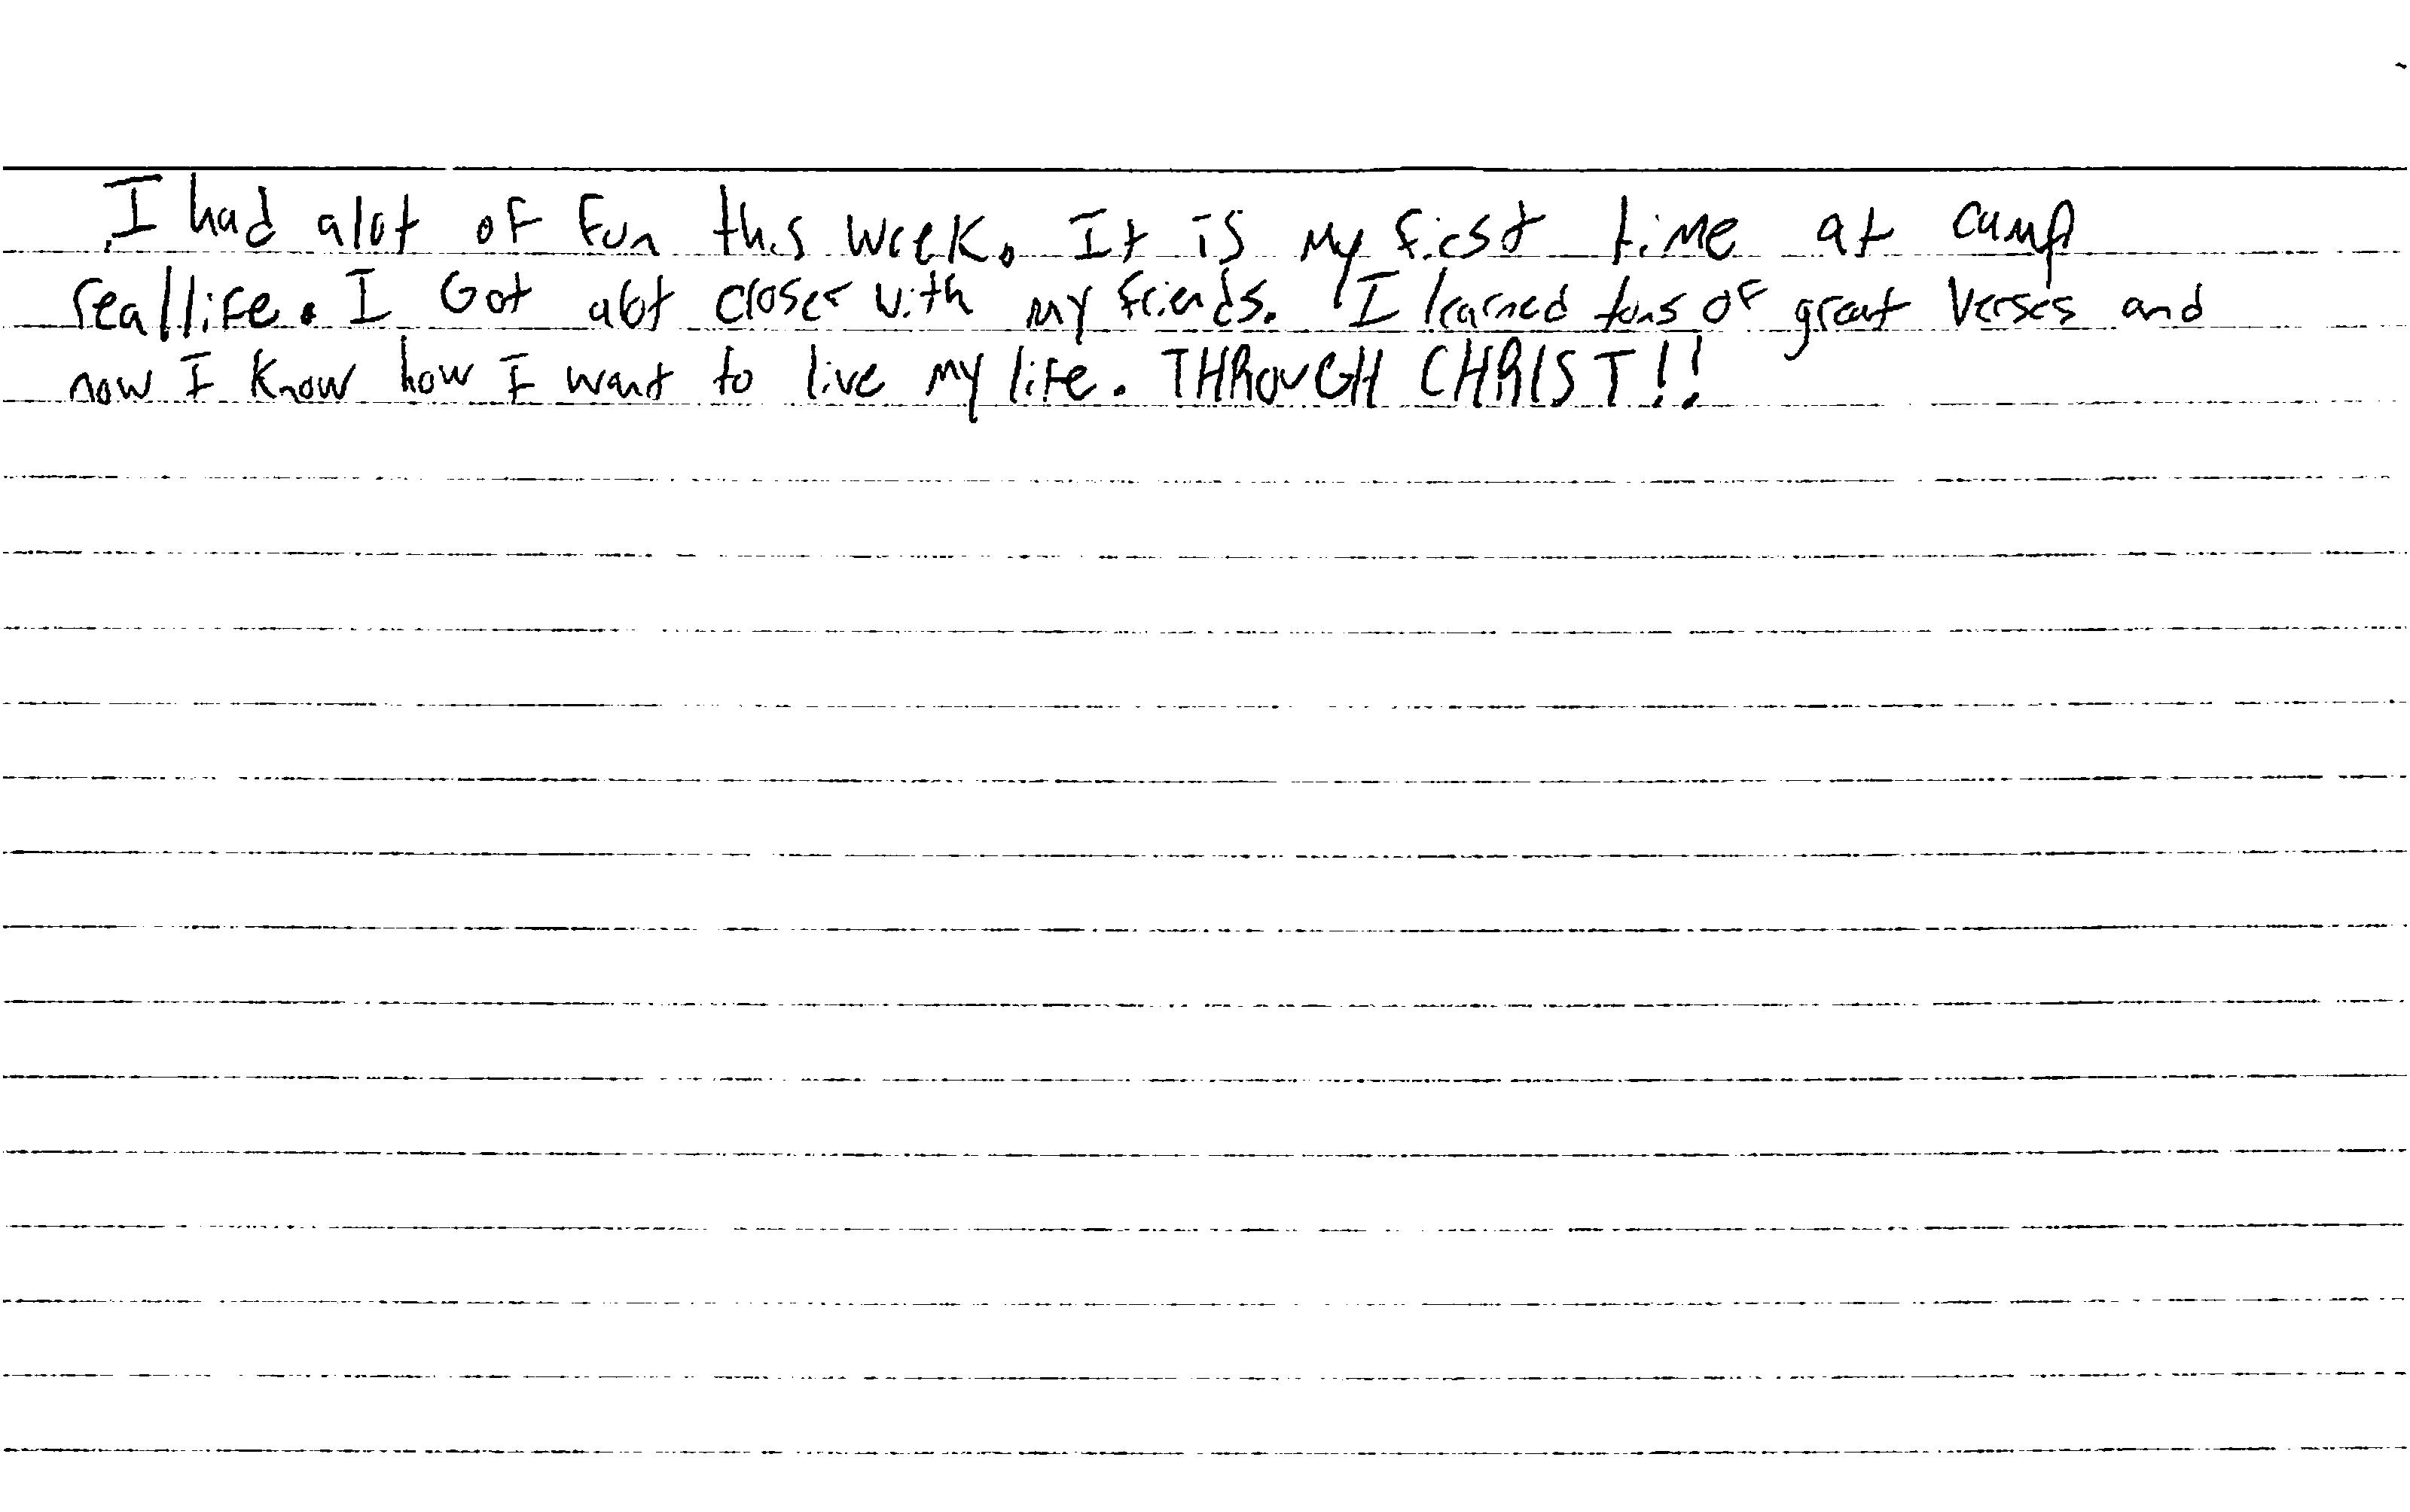 I had alot of Fun this week. It is my first time at camp
reallife. I Got alot closer with my friends. I learned tons of great verses and
now I know how I want to live my life. THROUGH CHRIST!!